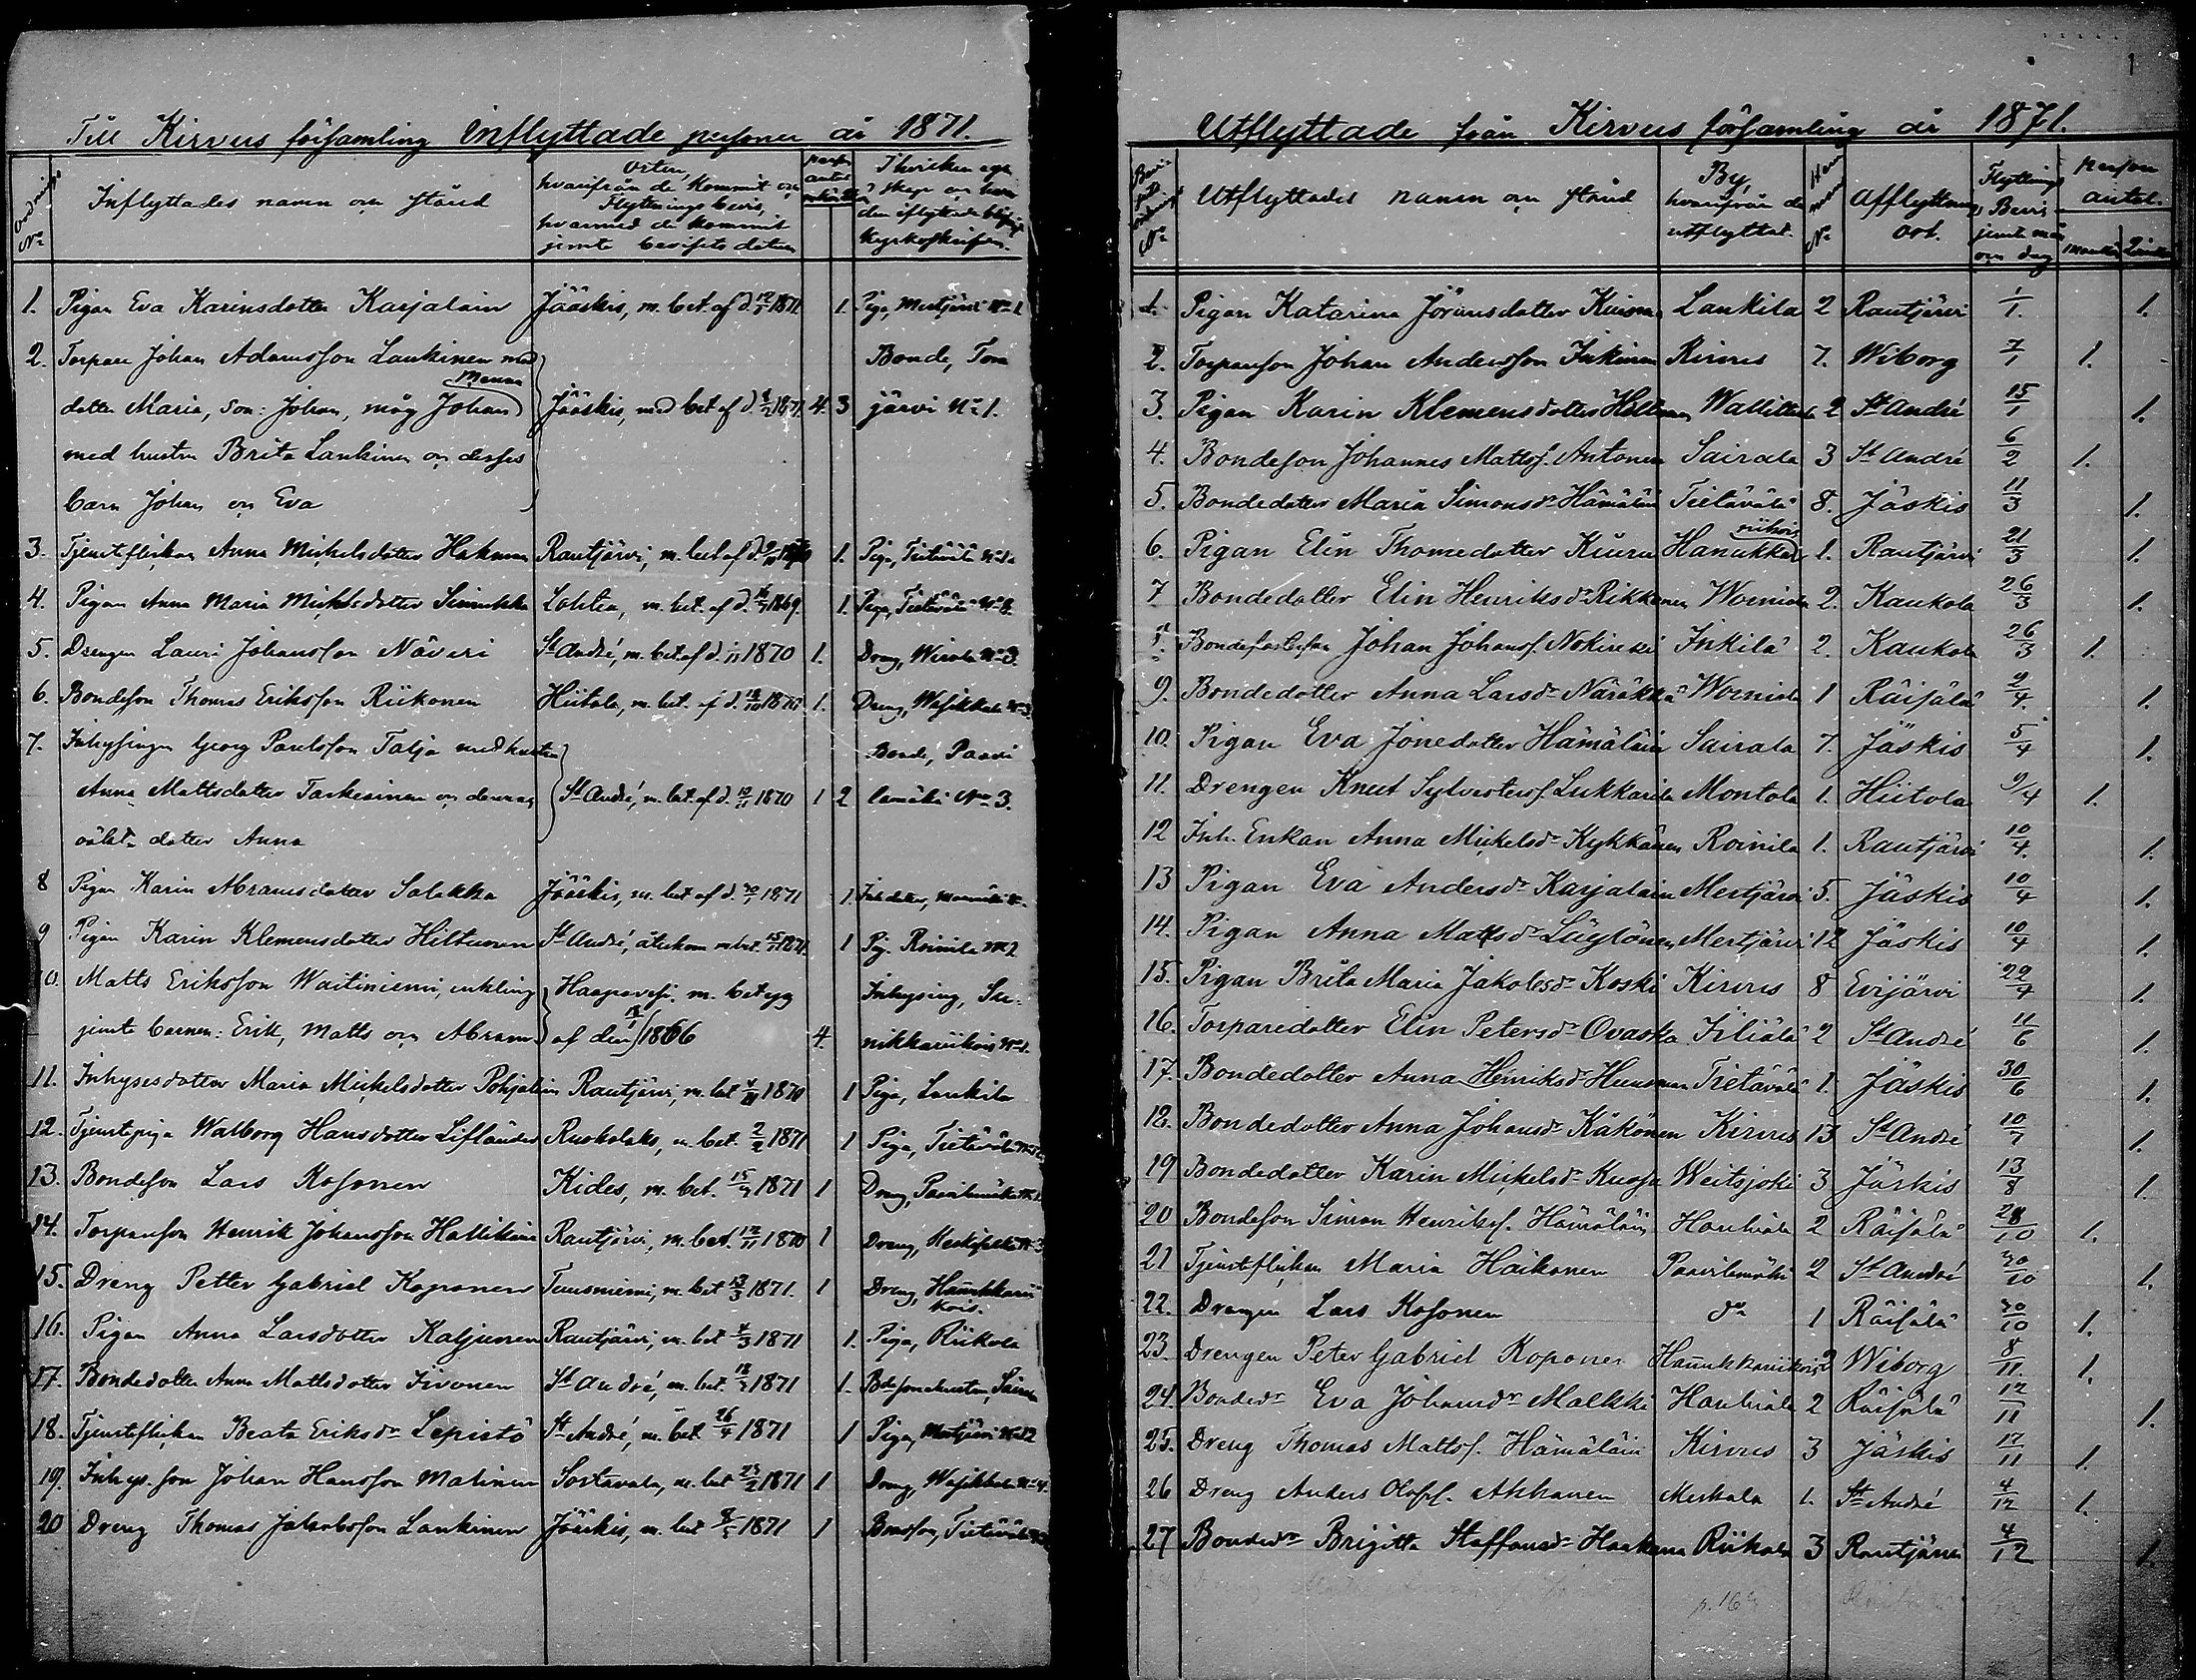 Till Kirvus församling Inflyttade personer år 1871.
Ordnings No
Inflyttades namn och stånd
Orten, hvarifrån de kommit och
Flyttnings bevis,
hvarmed de kommit
jemte bevisets datum
1. Pigan Eva Karinsdotter Karjalain Jääskis, m. bet. af d. 1871. 1. Piga, Mertjärvi No 1.
2. Torpare Johan Adamsson Lankinen med Bonde, Tom
dotter Maria, Son: Johan, måg Johan Jääskis, med bet. af d. 1871 4. 3 järvi No 1.
med hustru Brita Lankinen och desses
barn Johan och Eva
3. Tjensteflickan Anna Michelsdotter Hakman Rautjärvi, m. bet. af d. 1. Piga, Tietävälä No 1.
4. Pigan Anna Maria Michelsdotter Sinukka Lohtea, m. bet. af d. 1869. 1. Piga, Tietävälä No 8.
5. Drengen Lauri Johansson Näveri St André, m. bet. af d. 1870 1. Dreng, Wirola No 3.
6. Bondeson Thomas Eriksson Riikonen Hiitola, m. bet. af d. 1870. 1. Dreng, Wasikkala No 3.
7. Inhysingen Georg Paulsson Talja med hustru Bonde, Paavi
Anna Mattsdotter Tarkiainen och dennas St André, m. bet. af d. 10/11 1870 1 2 lamäki No 3.
oäkt. dotter Anna
8 Pigan Karin Abramsdotter Salakka Jääskis, m. bet. af d. 1871 1. Inh.dotter,
9 Pigan Karin Klemensdotter Hiltunen St André, återkom m. bet. 15/1 1871. 1 Pig. Roinila No 2
10. Matts Eriksson Waitiniemi, enkling Haapavesi, m. betyg Inhysing, Su-
jemte barnen: Erik, Matts och Abram af den 1866 4. nikkariikois No 1.
11. Inhysesdotter Maria Michelsdotter Pohjalain Rautjärvi, m. bet. 1870 1 Piga, Lankila
12. Tjenstepiga Walborg Hansdotter Liflander Ruokolaks, m. bet. 2/2 1871 1 Piga, Tietävälä
13. Bondeson Lars Kosonen Kides, m. bet. 1871 1 Dreng, Paavilamäki No 1.
14. Torpareson Henrik Johansson Hallikain Rautjärvi, m. bet. 12/11 1870 1 Dreng, No 3
15. Dreng Petter Gabriel Koponen Tuusniemi, m. bet. 13/3 1871. 1 Dreng, Hanukkarii
kois.
16. Pigan Anna Larsdotter Kaljunen Rautjärvi, m. bet. 4/3 1871 1. Piga, Riikola
17. Bondedotter Anna Mattsdotter Iivonen St André, m. bet. 1871 1. Bdesonehustru, Saira
18. Tjensteflickan Beata Eriksdr Lepistö St André, m. bet. 26/4 1871 1 Piga, Mertjärvi No 12
19. Inhys. son Johan Hansson Matinen Sortavala, m. bet. 23/2 1871 1 Dreng, Wasikkala No 4.
20 Dreng Thomas Jakobsson Lankinen Jääskis, m. bet. 1871 1 Tietävälä
Utflyttade från Kirvus församling år 1871.
Utflyttades namn och stånd
By,
hvarifrån de
utflyttat.
Hem
man
No
Afflyttnings
ort.
Flyttnings
Bevis
jemte mån
och dag
person
antal.
Mankön Qvinkön
1. Pigan Katarina Jöransdotter Kuisma Lankila 2 Rautjärvi 1/1. 1.
2. Torpareson Johan Andersson Inkinen Kirvus 7. Wiborg 7/1 1.
3. Pigan Karin Klemensdotter Hiltunen Wallittula 2 St André 15/1 1.
4. Bondeson Johannes Mattss. Antonen Sairala 3 St André 6/2 1.
5. Bondedotter Maria Simonsdr Hämäläin Tietävälä 8. Jäskis 11/3 1.
6. Pigan Elin Thomedotter Kiuru Hanukkariikois 1. Rautjärvi 21/3 1.
7 Bondedotter Elin Henriksdr Rikkonen Worniola 2. Kaukola 26/3 1.
8. Johan Johanss. Nokireki Inkilä 2. Kaukola 26/3 1.
9. Bondedotter Anna Larsdr Näräkkä Worniola 1 Räisälä 2/4. 1.
10. Pigan Eva Jonedotter Hämäläin Sairala 7. Jäskis 5/4 1.
11. Drengen Knut Sylvesterss. Lukkarila Montola 1. Hiitola 9/4 1.
12 Inh. Enkan Anna Michelsdr Kykkänen Roinila 1. Rautjärvi 10/4. 1.
13 Pigan Eva Andersdr Karjalain Mertjärvi 5. Jäskis 10/4 1.
14. Pigan Anna Mattsdr Löylönen Mertjärvi 12 Jäskis 10/4 1.
15. Pigan Brita Maria Jakobsdr Koski Kirvus 8 Evijärvi 29/4 1.
16. Torparedotter Elin Petersdr Ovaska Iliälä 2 St André 11/6 1.
17. Bondedotter Anna Henriksdr Huusman Tietävälä 1. Jäskis 30/6 1.
18. Bondedotter Anna Johansdr Käkönen Kirvus 13 St André 10/7 1.
19 Bondedotter Karin Michelsdr Kuosa Weitsjoki 3 Jäskis 13/8 1.
20 Bondeson Simon Henrikss. Hämäläin Hauhiala 2 Räisälä 28/10 1.
21 Tjensteflickan Maria Haikonen Paavilamäki 2 St André 30/10 1.
22. Drengen Lars Kosonen do 1 Räisälä 30/10 1.
23. Drengen Peter Gabriel Koponen Hanukkariikois 2 Wiborg 8/11. 1.
24. Bondedr Eva Johansdr Malkki Hauhiala 2 Räisälä 12/11 1.
25. Dreng Thomas Mattss. Hämäläin Kirvus 3 Jäskis 17/11 1.
26 Dreng Anders Olofss. Ahkanen Merkala 1. St André 4/12 1.
27 Bondedr Brigitta Staffansdr Haakana Riikola 3 Rautjärvi 4/12 1.